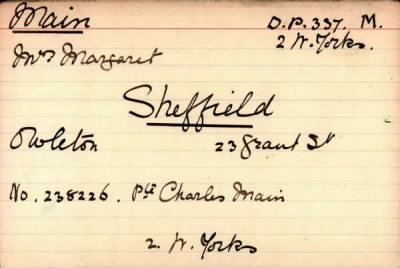 Main D.P. 337. M.
2 W. Yorks.
Mrs Margaret
Sheffield
Owleton 23 Grant St
No. 238226. Pte Charles Main
2. W. Yorks